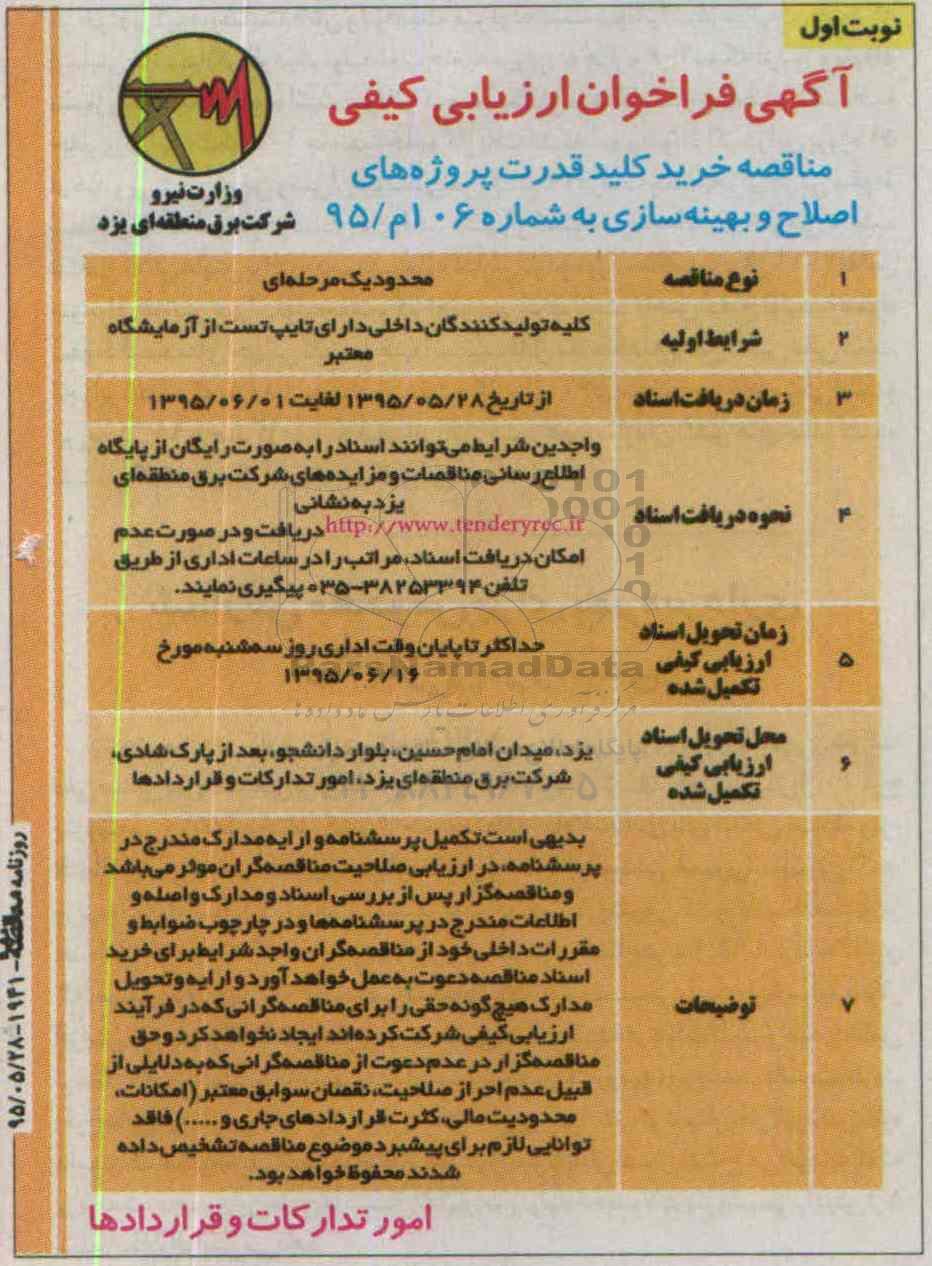 نوبت اول
آگهی فراخوان ارزیابی کیفی
مناقصه خرید کلید قدرت پروژه‌های
اصلاح و بهینه‌سازی به شماره ۱۰۶م/۹۵
وزارت نیرو
شرکت برق منطقه‌ای یزد
۱ نوع مناقصه محدود یک مرحله‌ای
۲ شرایط اولیه کلیه تولیدکنندگان داخلی دارای تایپ تست از آزمایشگاه
معتبر
۳ زمان دریافت اسناد از تاریخ ۱۳۹۵/۰۵/۲۸ لغایت ۱۳۹۵/۰۶/۰۱
۴ نحوه دریافت اسناد
واجدین شرایط می‌توانند اسناد را به صورت رایگان از پایگاه
اطلاع رسانی مناقصات و مزایده‌های شرکت برق منطقه‌ای
یزد به نشانی
http://www.tenderyrec.ir دریافت و در صورت عدم
امکان دریافت اسناد، مراتب را در ساعات اداری از طریق
تلفن ۳۸۲۵۳۳۹۴-۰۳۵ پیگیری نمایند.
۵ زمان تحویل اسناد
ارزیابی کیفی
تکمیل شده
حداکثر تا پایان وقت اداری روز سه‌شنبه مورخ
۱۳۹۵/۰۶/۱۶
۶ محل تحویل اسناد
ارزیابی کیفی
تکمیل شده
یزد، میدان امام حسین، بلوار دانشجو، بعد از پارک شادی،
شرکت برق منطقه‌ای یزد، امور تدارکات و قراردادها
۷ توضیحات
بدیهی است تکمیل پرسشنامه و ارایه مدارک مندرج در
پرسشنامه، در ارزیابی صلاحیت مناقصه‌گران موثر می‌باشد
و مناقصه‌گزار پس از بررسی اسناد و مدارک واصله و
اطلاعات مندرج در پرسشنامه‌ها و در چارچوب ضوابط و
مقررات داخلی خود از مناقصه‌گران واجد شرایط برای خرید
اسناد مناقصه دعوت به عمل خواهد آورد و ارایه و تحویل
مدارک هیچ گونه حقی را برای مناقصه‌گرانی که در فرآیند
ارزیابی کیفی شرکت کرده‌اند ایجاد نخواهد کرد و حق
مناقصه‌گزار در عدم دعوت از مناقصه‌گرانی که به دلایلی از
قبیل عدم احراز صلاحیت، نقصان سوابق معتبر (امکانات،
محدودیت مالی، کثرت قراردادهای جاری و .....) فاقد
توانایی لازم برای پیشبرد موضوع مناقصه تشخیص داده
شدند محفوظ خواهد بود.
امور تدارکات و قراردادها
روزنامه مناقصه - ۱۹۴۱-۹۵/۰۵/۲۸
ParsNamadData
مرکز فرآوری اطلاعات پارس نماد داده‌ها